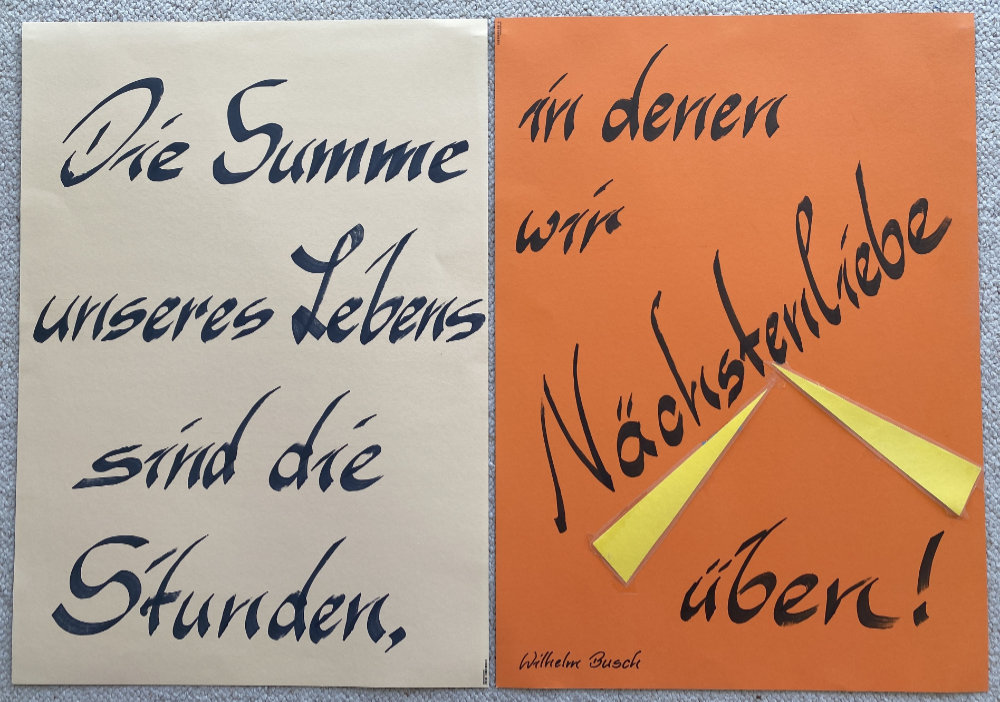 Die Summe
unseres Lebens
sind die
Stunden,
in denen
wir
Nächstenliebe
üben!
Wilhelm Busch